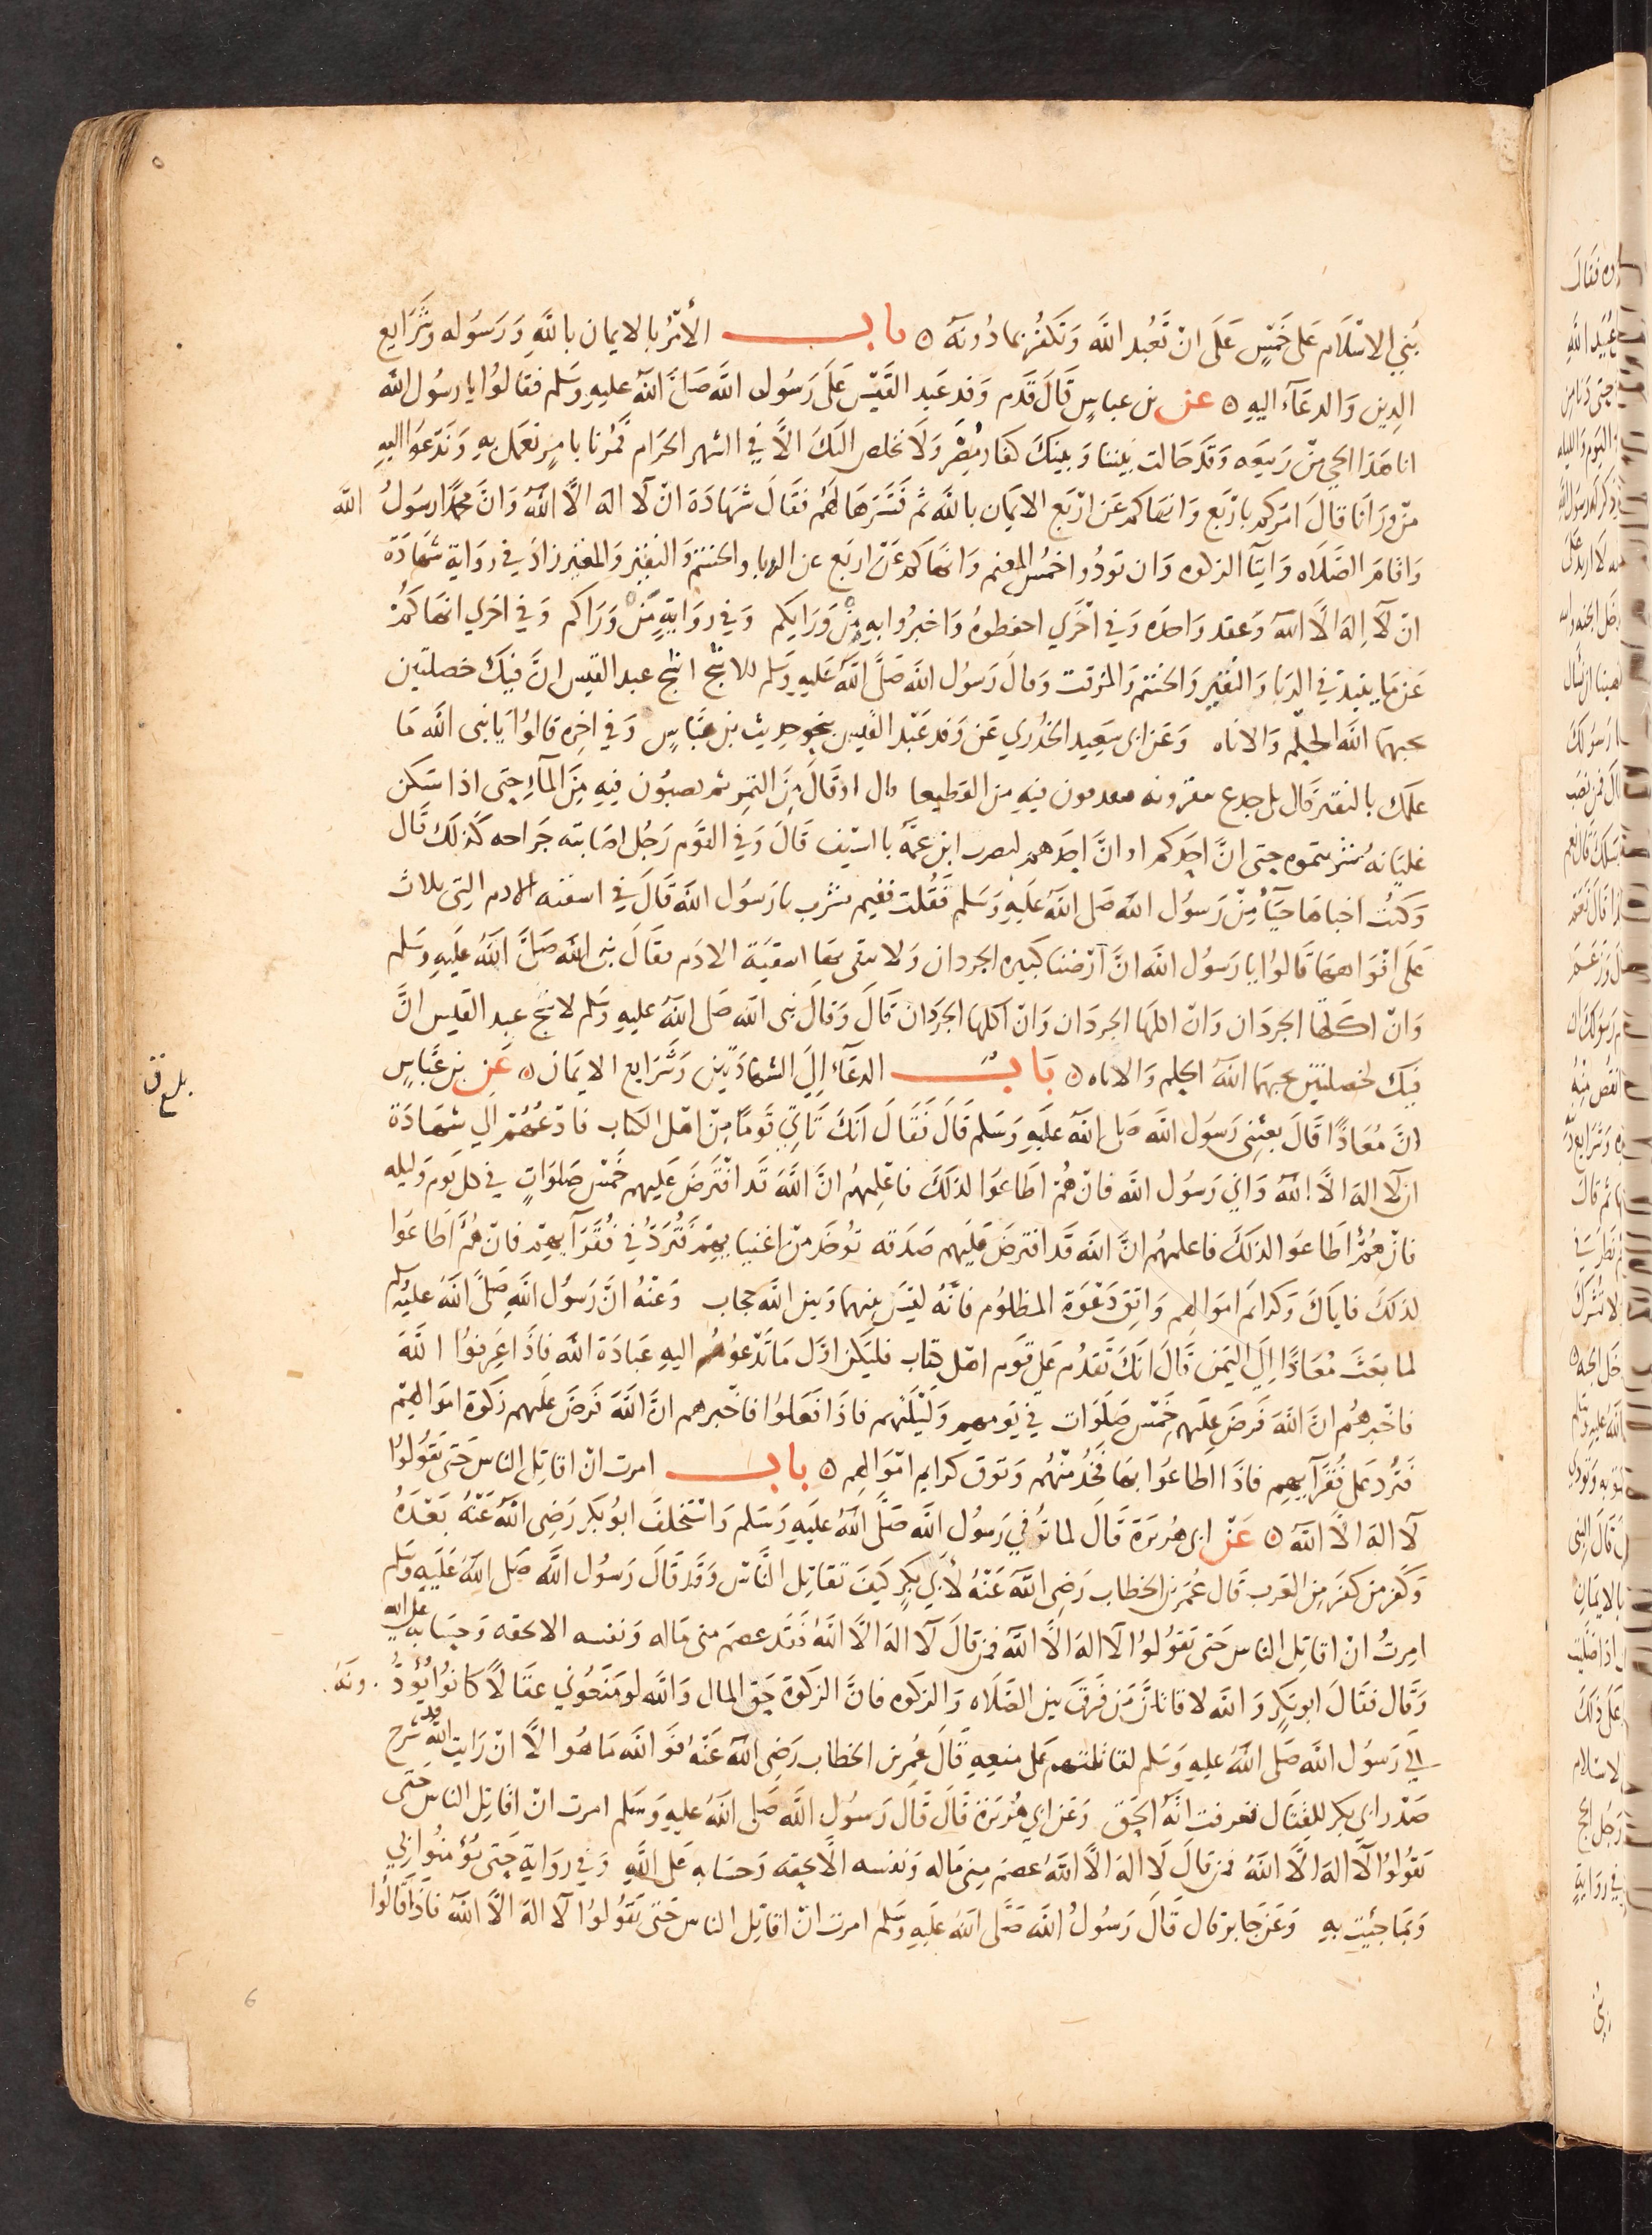 بُني الاسْلَام عَلى خَمْسٍ عَلَى انْ تَعْبد اللَّه وَتَكفُر بمادُونَهُ ٥ باب الأمْرُ بالايمان باللَّهِ وَرَسُوله وشَرَايع
الدِين وَالدعَاء اليهِ ٥ عن بن عباسٍ قَالَ قَدم وَفد عَبد القَيْس عَلَى رَسُول اللَّه صَلى اللَّهُ عليهِ وَسَلم فقالوُا يا رسُول اللَّه
انا هَذَا الحي مِنْ رَبيعَه وَقَد حَالت بَيننا وَبينَكَ كفار مُضَر وَلَا نخلص اليكَ الَّا في الشهر الحَرَام فَمُرنا بامرٍ نعمَل بهِ وَندَعُوا اليهِ
مَنْ وَرَانا قالَ امركم بارْبَع وَانهاكم عَن ارْبَع الايمَان باللَّه ثم فَسَّرَهَا لهُم فقَالَ شهَادَة انْ لَا اله الَّا اللَّهُ وَانَّ محمدًا رسَولُ اللَّه
وَاقَام الصَّلَاه وَايتَا الزكوه وَان تودُوا خمُس المغنم وَانهَاكم عَنْ اربَع عن الدبا والحنتم وَالنقير وَالمقير زادَ في روَاية شهَادَة
ان لَا إِله الَّا اللَّهُ وَعقد وَاحده وَفي اخْرَي احفظوهُ وَاخبرُوا بهِ مِنْ وَرَايكم وَفي روَايةٍ مَنْ وَرَاكم وَفي اخري انهاكمُ
عَن مَا ينبذ في الدبَا وَالنقير وَالحنتم وَالمزفت وَقالَ رَسُول اللَّه صَلَّى اللَّهُ عَليهِ وَسَلم للاشج اشج عبد القيس انَّ فيكَ خصلتين
يحبهمَا اللَّه الحِلْم وَالاناه وَعَن ابى سَعِيد الخُدري عَن وَفد عَبْد القيس بنحو حديث بن عَبَّاسٍ وَفي اخِره قالوُا يَا نبى اللَّه مَا
علمك بالنقير قال بلي جدع تنقرونه فتقدفون فيهِ من القطيعا قال او قَالَ مِنَ التمرِ ثم تصبوُن فِيهِ مِنَ الماءِ حتى اذا سَكن
غليَانهُ شربتموه حتى انَّ احدكم او انَّ احدهم ليضرب ابن عمَّهُ بالسَّيف قَالَ وَفي القوَم رَجُل اصَابته جَراحه كَذلكَ قَال
وَكنتُ اخباهَا حَيَاءً مِنْ رَسوُل اللَّه صَلى اللَّهُ عَليهِ وَسَلم فَقُلت فَفيم نشرب يا رَسوُل اللَّه قَالَ في اسقيه الادم التِى يلاث
عَلَى افْوَاههَا قَالوُا يا رَسوُل اللَّه انَّ ارْضنا كَثيره الجردان وَلا تبقى بهَا اسقيَة الادَم فقَالَ نبى اللَّه صَلَّى اللَّهُ عَليهِ وَسَلم
وَانْ اكَلتهَا الجردَان وَانْ اكلتهَا الجردَان وَانْ اكلتها الجردَان قَالَ وَقالَ نبى اللَّه صَلى اللَّهُ عليهِ وَسَلم لاشج عبد القيس انَّ
فيكَ لخصلتيْن يحبهمَا اللَّهُ الحِلم وَالاناه ٥ بَاب الدعَاء إلَى الشهَادَتين وَشَرايع الايمَان ٥ عَن بن عَبَّاسٍ
انَّ مُعَاذًا قَالَ بعثنِى رَسوُل اللَّه صَلى اللَّهُ عَليهِ وَسَلم قَالَ فَقَالَ انكَ تَاتِي قَومًا مِنْ اهْل الكتاب فادْعُهُمْ الي شهَادَة
ان لَا اله الَّا اللَّهُ وَاني رَسوُل اللَّه فانْ هُمْ اطَاعوَا لذلكَ فاعْلِمهُم انَّ اللَّهَ قَد افْتَرَضَ عَليهم خَمْسَ صَلوَاتٍ في كل يَوم وَليله
فانْ هُمُ اطَاعوَا لذلكَ فاعلمهُم انَّ اللَّه قَد افترضَ عَليهم صَدَقه توُخَذ مِنْ اغنيايهمْ فتُرَدُّ في فُقرَآيهمْ فانْ هُمْ اطَاعَوا
لذلكَ فاياكَ وَكرايَم امَوالهم وَاتقِ دَعْوَة المظلوُم فانَّهُ ليَسَ بينهَا وَبين اللَّه حجاب وَعَنْهُ انَّ رَسوُل اللَّهِ صَلَّى اللَّهُ عليهِ وَسَلم
لما بعَثَ مُعَاذًا إلَى اليَمن قَالَ انكَ تَقدُم عَلى قَوم اهْل كتاب فليَكن اوَّل مَا تَدْعُوُهُم اليهِ عبَادَة اللَّه فاذَا عَرفوُا اللَّهَ
فاخْبرهمُ انَّ اللَّه فَرضَ عَليَهم خَمْسَ صَلَوَات في يَومِهم وَلَيْلتَهم فاذَا فَعَلوُا فاخْبرهم انَّ اللَّهَ فَرضَ عَليهم زَكَوة امَوَالهمْ
فَتُرد عَلى فُقَرآيهم فاذَا اطَاعوَا بهَا فَخُذ مْنهُم وَتَوقَّ كَرايم امْوَالهم ٥ باب امرت انْ اقاتِل الناس حَتى يَقوُلوُا
لَا اله الَّا اللَّهُ ٥ عَن ابى هُرَيرَة قَالَ لما توُفي رَسوُل اللَّه صَلَّى اللَّهُ عَليهِ وَسَلم وَاسْتخلفَ ابوُبكر رَضِى اللَّهُ عَنْهُ بعْدَهُ
وَكَفر من كفرَ مِن العَرب قَال عُمَر بن الخطاب رَضِى اللَّهُ عَنْهُ لأبي بكرٍ كَيفَ تقاتِل النَّاس وَقَد قَالَ رَسُول اللَّه صَلى اللَّهُ عَليَهِ وَسَلم
امِرتُ انْ اقاتِل الناس حَتى يَقوُلوُا لَا اله الَّا اللَّهُ فمن قالَ لَا اله الَّا اللَّهُ فَقَد عصمَ منى مَاله وَنفسه الا بحقه وَحِسَابه على اللَّه
وَقَال فقَالَ ابوبَكرٍ وَاللَّه لا قاتلنَّ مَن فَرقَ بين الصَّلَاه وَالزكوه فانَّ الزكوَة حَق المال وَاللَّه لو مَنعُوني عقَالًا كانوُا يُؤَدُّ ونَهُ
الي رَسوُل اللَّه صَلَى اللَّهُ عليهِ وَسَلم لقاتلتهُم عَلى منعِهِ قَالَ عُمر بن الخطاب رَضِى اللَّهُ عَنْهُ فوَ اللَّه مَا هُو الَّا انْ رَايت اللَّه قد شرح
صَدْر ابي بكر للقِتَال فعرفت انَّهُ الحَق وَعَن ابي هُرَيرَة قَالَ قَال رَسُول اللَّه صَلى اللَّهُ عليهِ وَسَلم امرت انْ اقاتِل الناس حَتى
يَقوُلوُا لَا اله الَّا اللَّهُ فمن قالَ لَا اله الَّا اللَّهُ عصَم مِنى مَاله وَنفسه الَّا بحقه وَحسَابه عَلى اللَّهِ وَفي روَاية حَتى يؤمنوُا بي
وَبمَا جئيت بهِ وَعَن جَابر قال قَالَ رَسُولُ اللَّه صَلَّى اللَّهُ عَليهِ وَسَلم امرت انْ اقاتِل الناس حَتى يَقوُلوُا لَا اله الَّا اللَّهُ فاذَا قَالوُا
6